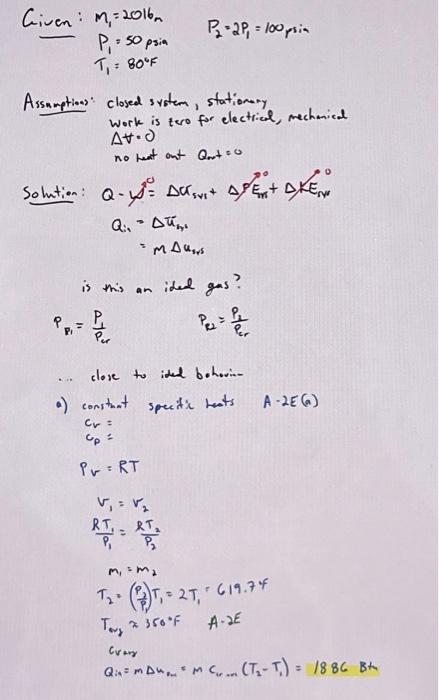 Given: m₁ = 20 lbm P₂ = 2P₁ = 100 psia
P₁ = 50 psia
T₁ = 80°F
Assumptions: closed system, stationary
Work is zero for electrical, mechanical
ΔV = 0
no heat out Qout = 0
Solution: Q - W = ΔU sys + ΔPE sys + ΔKE sys
0 0 0
Qin = ΔU sys
= m Δu sys
is this an ideal gas?
P R1 = P₁/Pcr P R2 = P₂/Pcr
... close to ideal behavior
a) constant specific heats A-2E(a)
Cv =
Cp =
Pv = RT
v₁ = v₂
RT₁/P₁ = RT₂/P₂
m₁ = m₂
T₂ = (P₂/P₁)T₁ = 2T₁ = 619.7°F
Tavg ≈ 350°F A-2E
Cv avg
Qin = m Δu = m Cv (T₂-T₁) = 1886 Btu